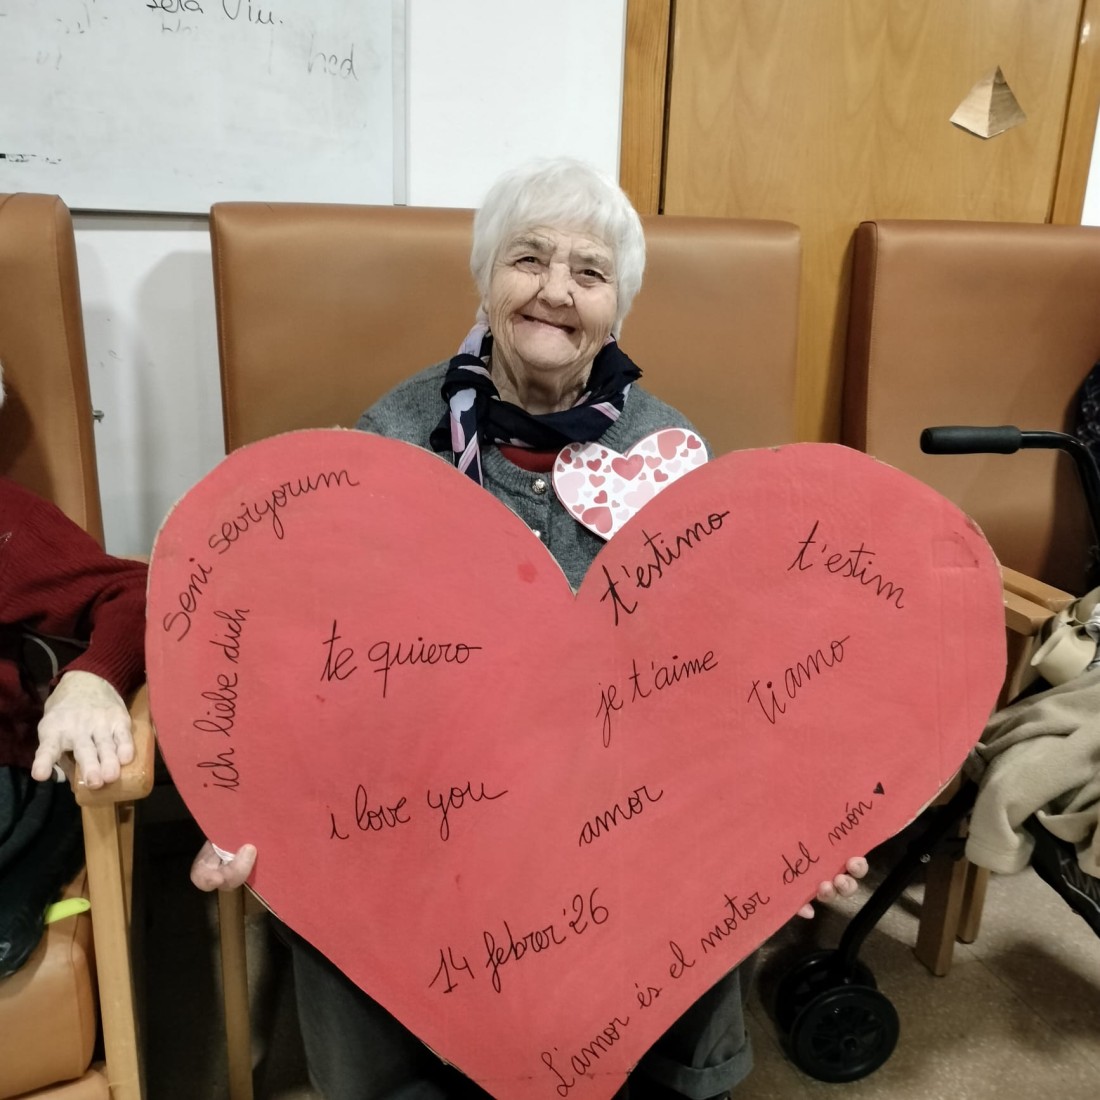 será Viu.
hed
Seni seviyorum
ich liebe dich
te quiero
t'estimo
t'estim
je t'aime
ti amo
i love you
amor
14 febrer '26
L'amor és el motor del món.